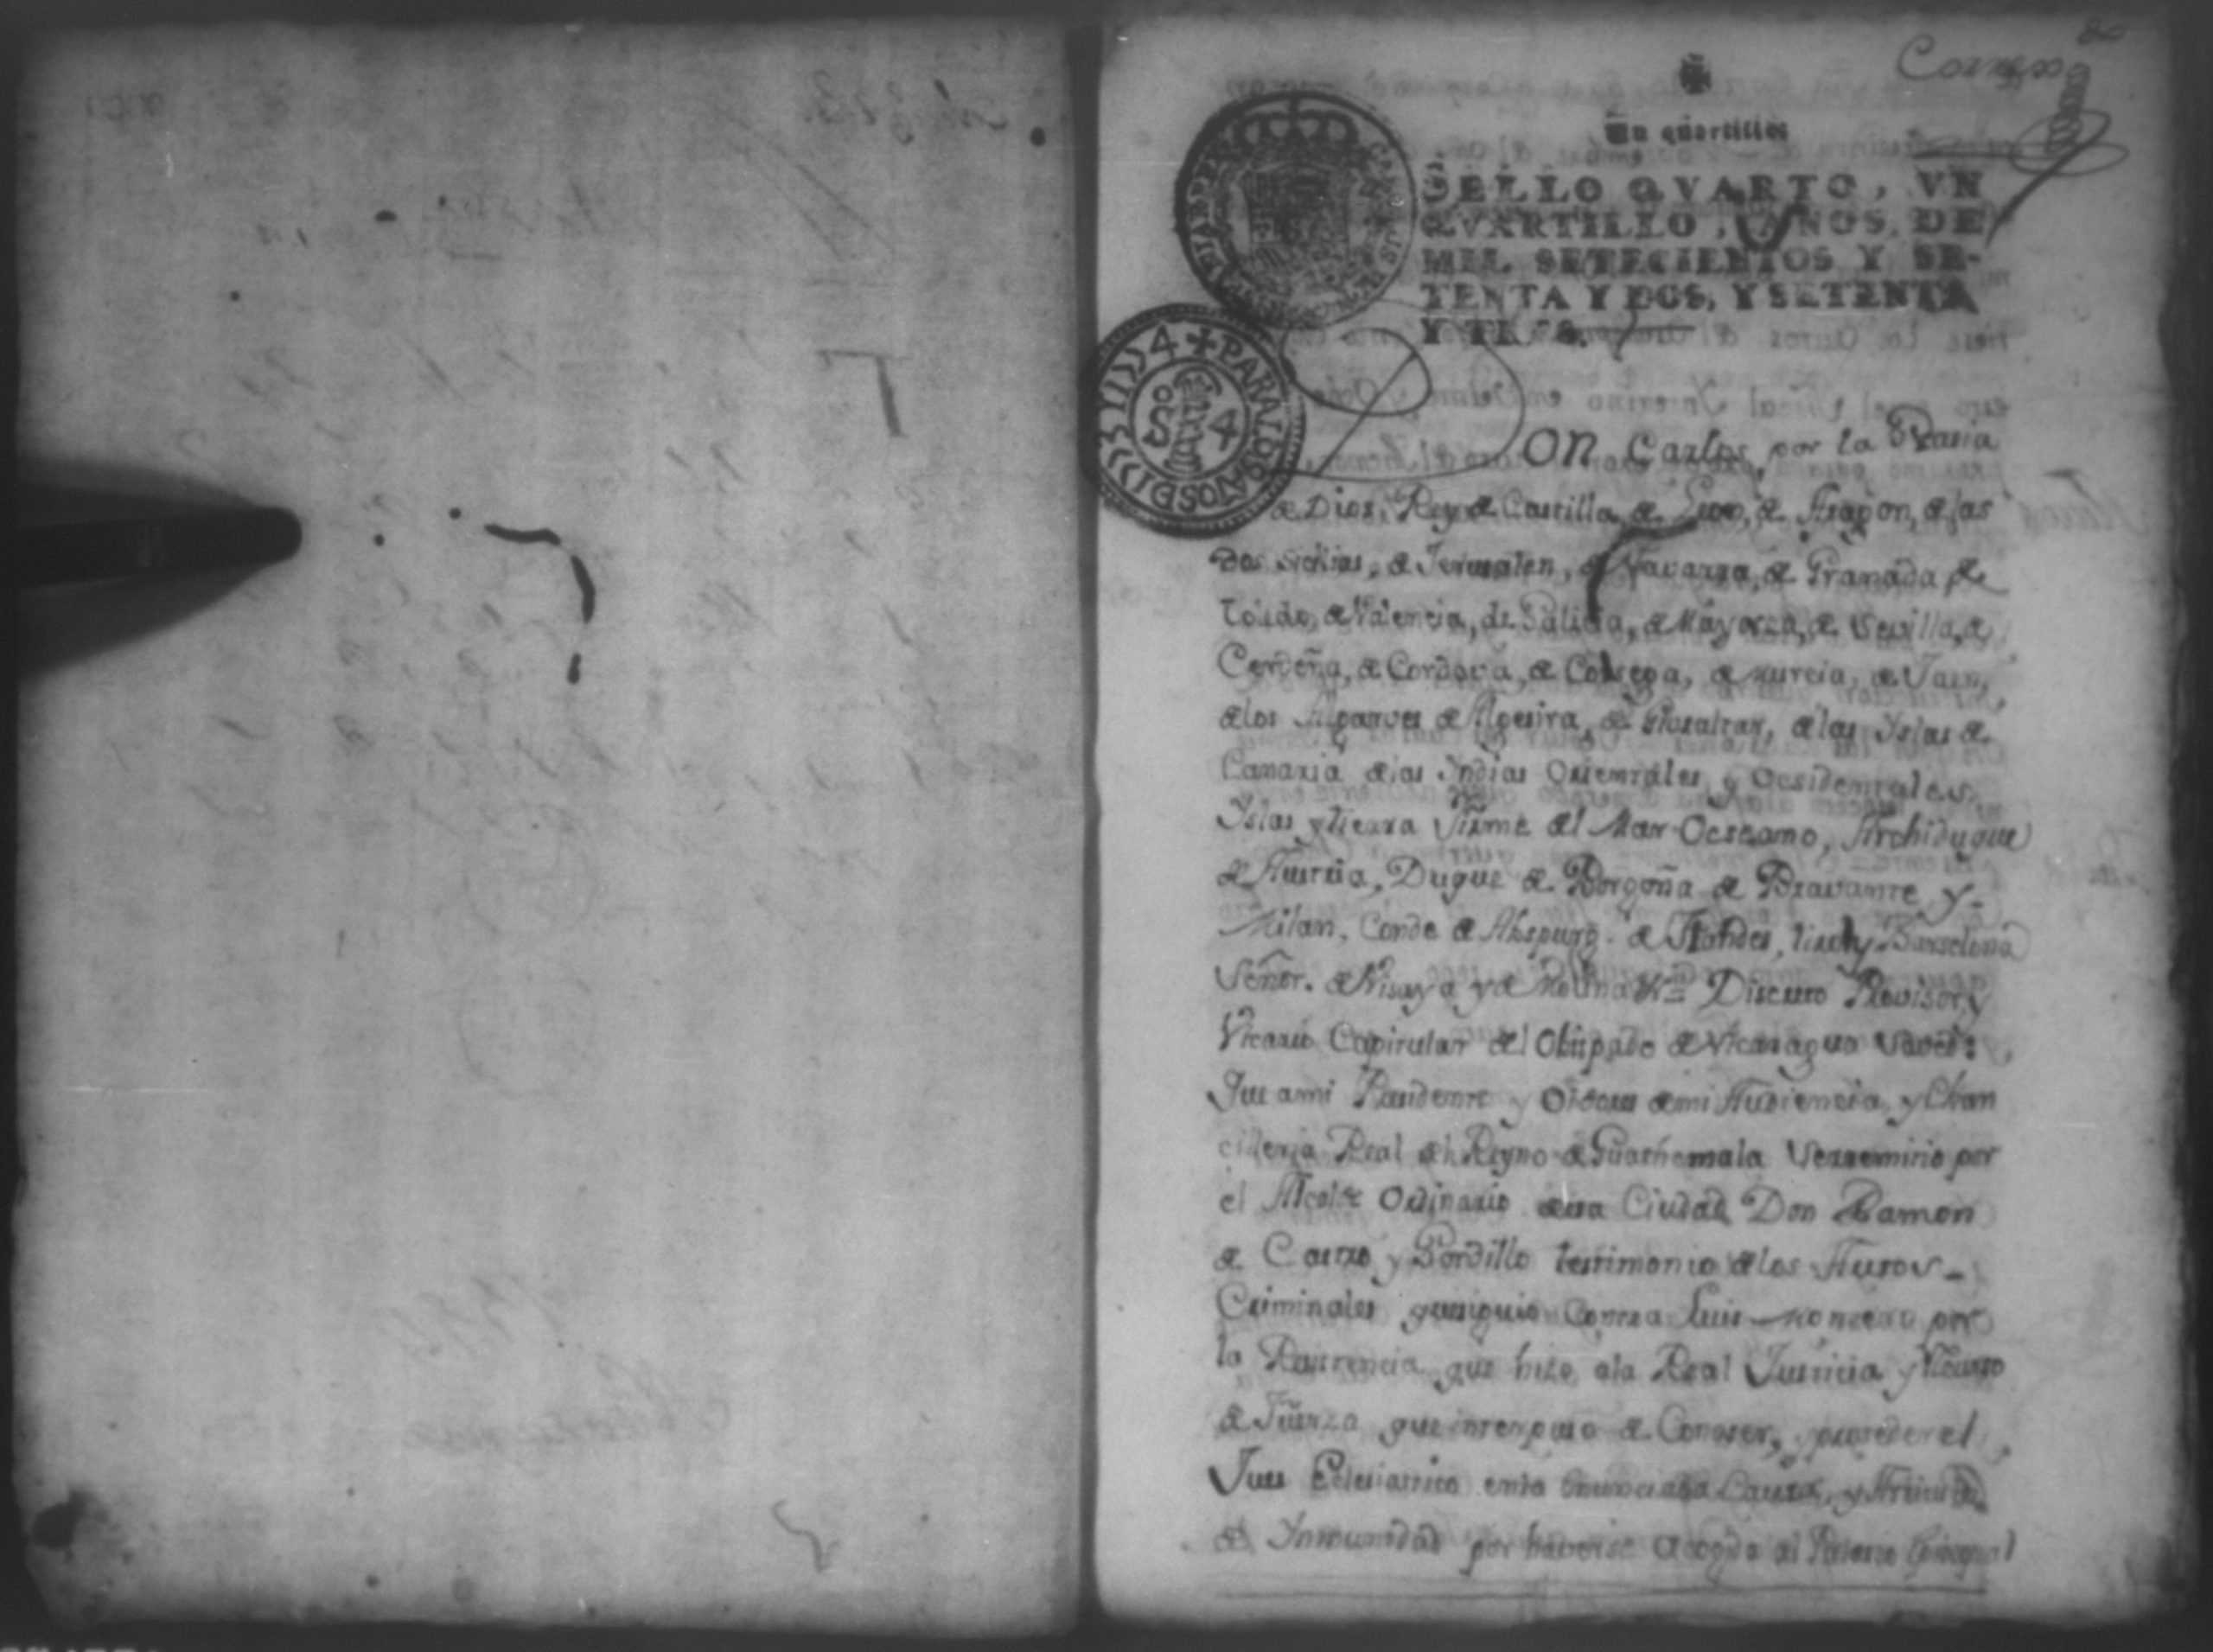 Un quartillo
SELLO QVARTO, VN
QVARTILLO, AÑOS DE
MIL SETECIENTOS Y SE-
TENTA Y DOS, Y SETENTA
Y TRES.
PARA LOS AÑOS D 1774
S.º 4
ON Carlos por la Grasia
de Dios, Rey de Castilla, de Leon, de Aragon, de las
Dos Sicilias, de Jerusalen, de Navarra, de Granada de
Toledo, de Valencia, de Galicia, de Mayorca, de Sevilla, de
Cerdeña, de Cordova, de Corsega, de Murcia, de Jaen,
de los Algarves de Algesira, de Gibraltar, de las Yslas de
Canaria de las Yndias Orientales, y Occidentales,
Yslas y tierra firme del Mar Occeano, Archiduque
de Austria, Duque de Borgoña de Bravante y
Milan, Conde de Abspurg de Flandes, tirol y Barselona
Señor de Viscaya y de Molina &ª Discreto Provisor, y
Vicario Capitular del Obispado de Nicaragua Saved:
Que a mi Presidente y Oidores de mi Audiencia y Chan
cilleria Real del Reyno de Guathemala se remitio por
el Alcalde Ordinario de esa Ciudad Don Ramon
de Castro y Gordillo testimonio de los Autos
Criminales que siguio contra Luis Montero por
la Resistencia que hizo a la Real Justicia y Recurso
de Fuerza que interpuso de Conoser, y proseder el
Jues Eclesiastico en la enunciada Causa, y Articulo
de Ynmunidad por haverse acogido al Palacio Episcopal